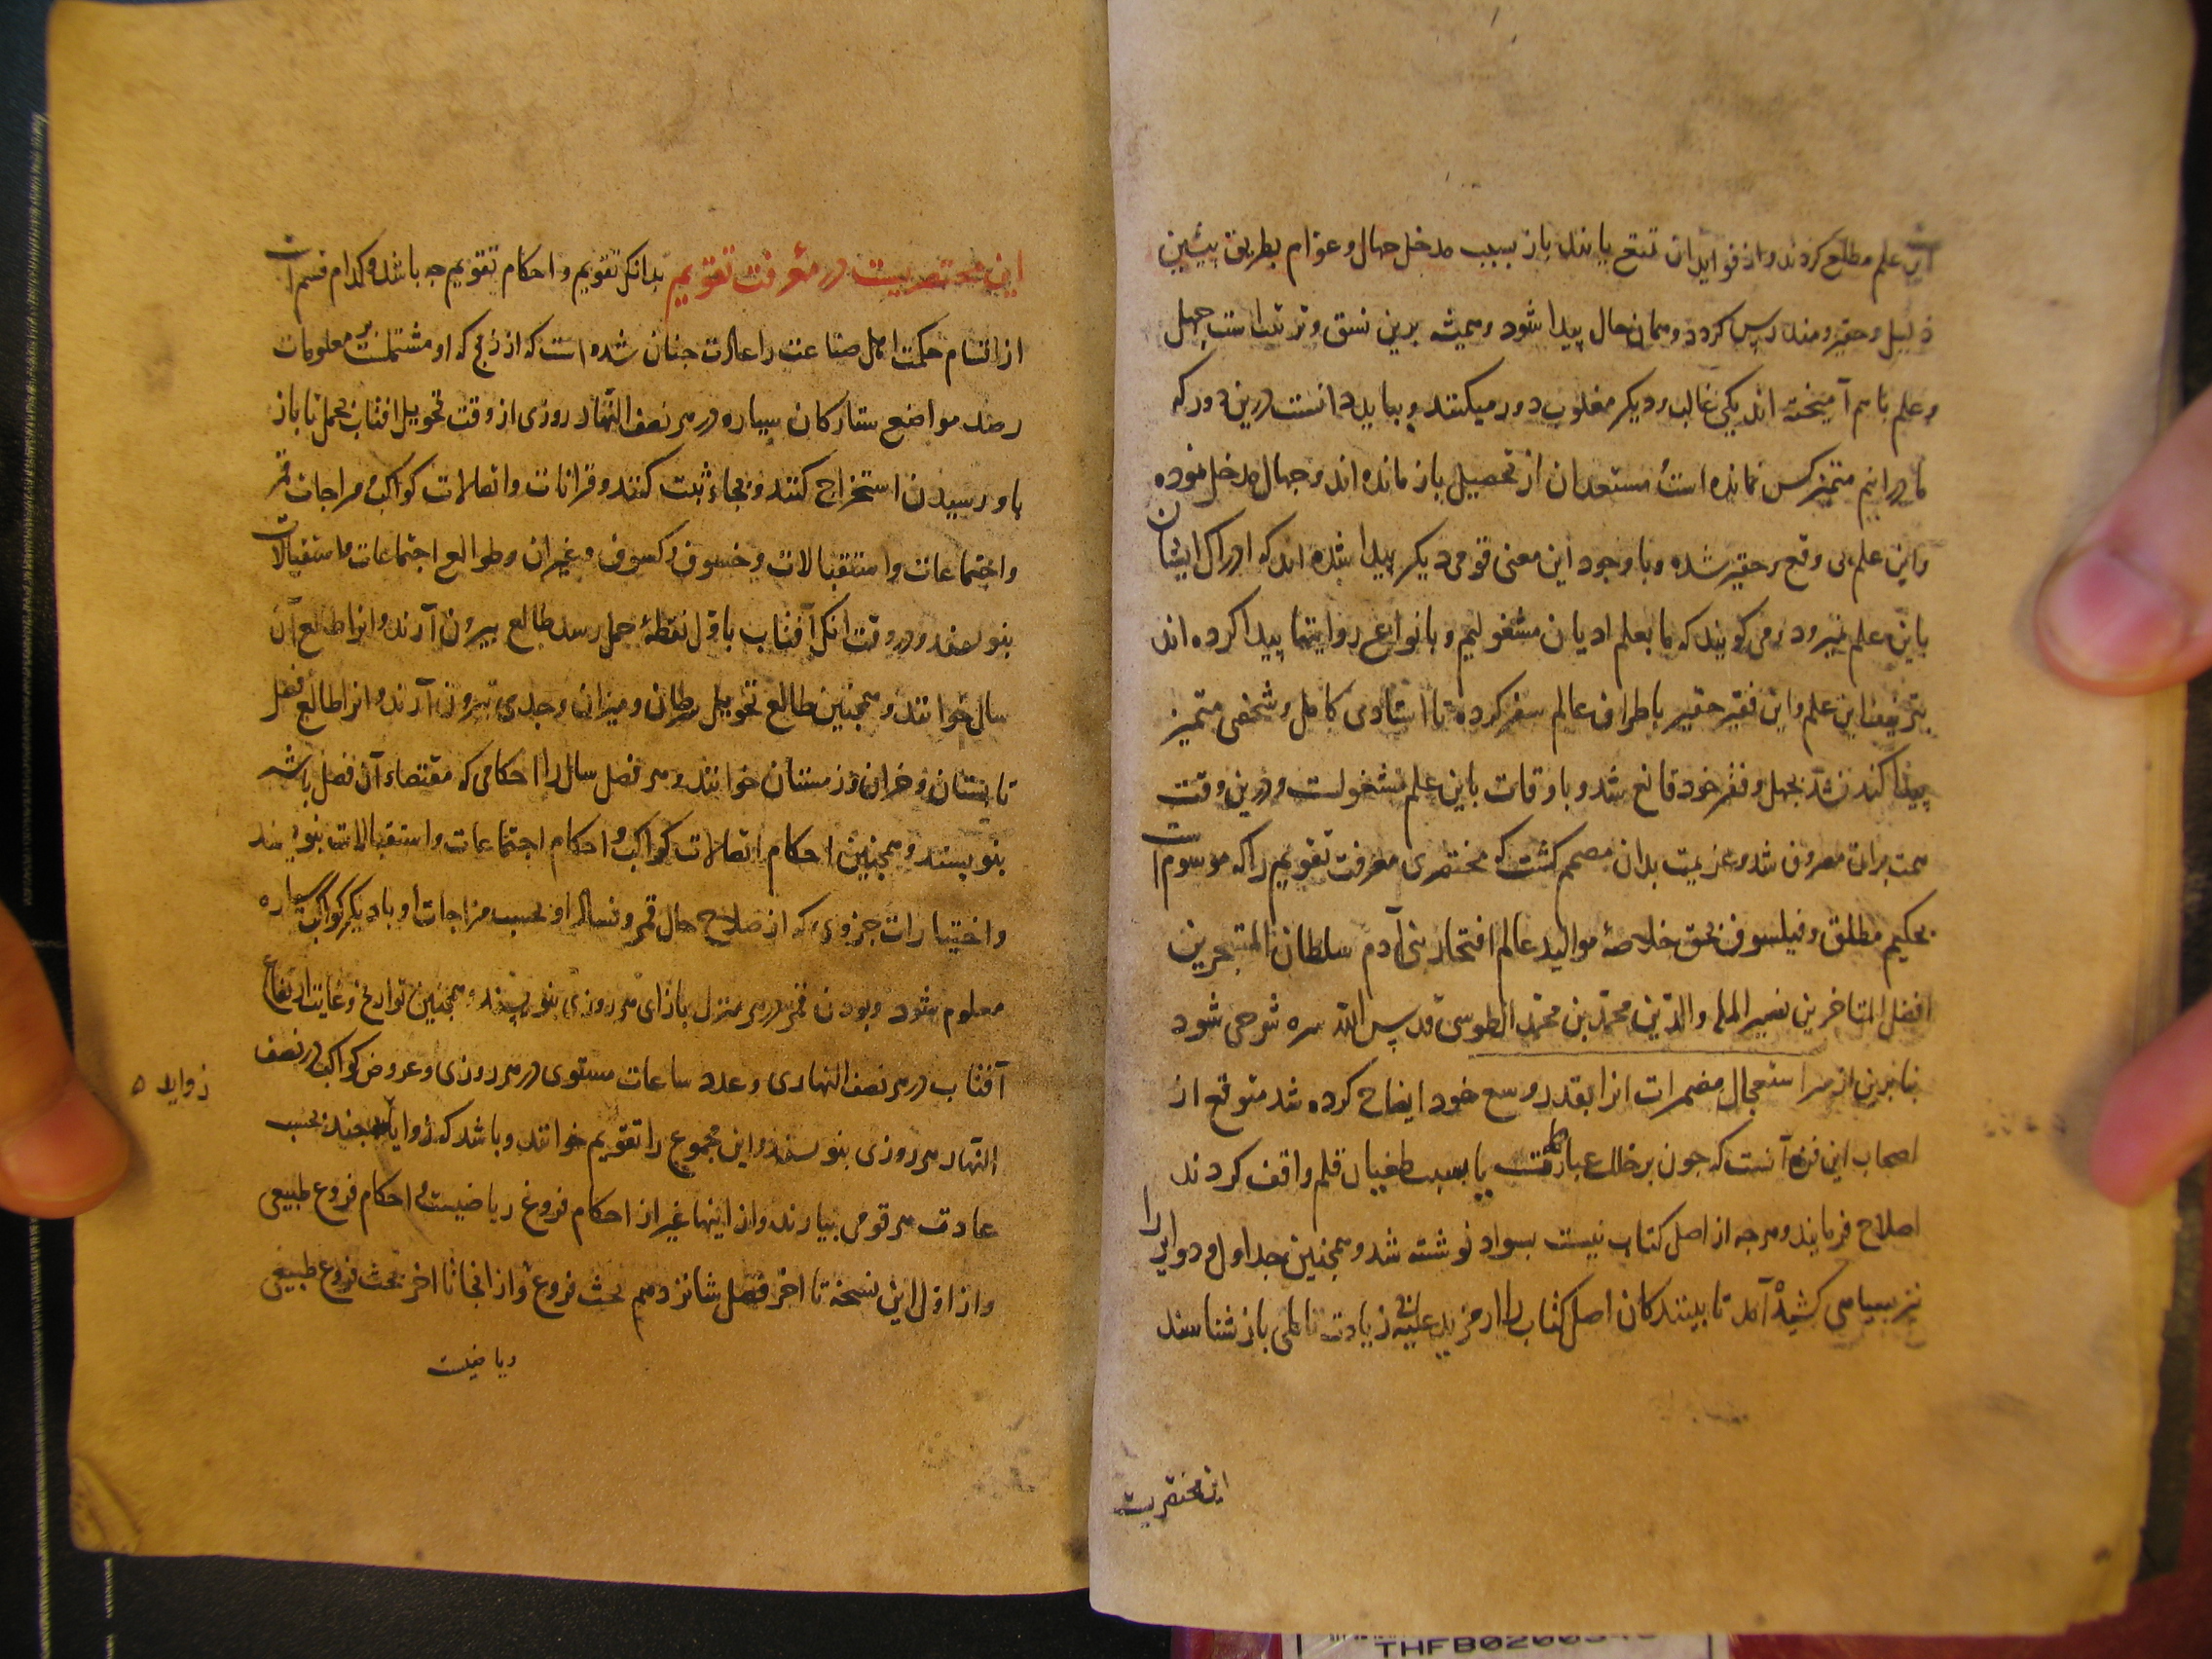 این علم مطلع کردند و از فواید ان تمتع یابند باز بسبب مدخل جهال و عوام بطریق پیشین
ذلیل و حقیر و مندرس کردد و همان حال پیدا شود و همیشه برین نسق و ترتیب است جهل
و علم با هم آمیخته اند یکی غالب و دیکر مغلوب دور میکنند و بباید دانست درین دور که
ما درانیم متمیز کس نمانده است و مستعدان از تحصیل باز مانده اند و جهال مدخل نموده
و این علم بی وقع و حقیر شده و با وجود این معنی قومی دیکر پیدا شده اند که ادراک ایشان
باین علم نمیرود و می کویند که ما بعلم ادیان مشغولیم و بانواع روایتها پیدا کرده اند
بتزییف این علم و این فقیر حقیر باطراف عالم سفر کرده تا استادی کامل و شخصی متمیز
پیدا کند نشد بجهل و فقر خود قانع شد و باوقات باین علم مشغولست و درین وقت
همت بران مصروف شد و عزیمت بدان مصمم کشت که مختصری معرفت تقویم را که موسوم است
بحکیم مطلق و فیلسوف بحق خلاصهٔ موالید عالم افتخار بنی آدم سلطان المتبحرین
افضل المتاخرین نصیر المله والدین محمد بن محمد الطوسی قدس الله سره شرحی شود
بنابرین از سر استعجال مضمرات انرا بقدر وسع خود ایضاح کرده شد متوقع از
اصحاب این فن آنست که چون بر خلل عبارت یا بسبب طغیان قلم واقف کردند
اصلاح فرمایند و هرجه از اصل کتاب نیست بسواد نوشته شد و همجنین جداول و دوایر را
نیز بسیاهی کشیده آمد تا بینندکان اصل کتاب را از مزید علیه زیادت تاملی باز شناسند
این مختصریست
این مختصریست در معرفت تقویم بدانکه تقویم و احکام تقویم جه باشد و کدام قسم است
از اقسام حکمت اهل صناعت را عادت جنان شده است که از زیج که او مشتملست بر معلومات
رصد مواضع ستارکان سیاره در هر نصف النهار روزی از وقت تحویل افتاب بحمل تا باز
باو رسیدن استخراج کنند و بجای ثبت کنند و قرانات و اتصالات کواکب و مزاجات قمر
و اجتماعات و استقبالات و خسوف و کسوف و غیر ان و طوالع اجتماعات و استقبالات
بنویسند و در وقت انکه آفتاب باول نقطهٔ حمل رسد طالع بیرون آرند و انرا طالع آن
سال خوانند و همجنین طالع تحویل سرطان و میزان و جدی بیرون آرند و انرا طالع فصل
تابستان و خزان و زمستان خوانند و هر فصل سال را احکامی که مقتضاء آن فصل باشد
بنویسند و همجنین احکام اتصالات کواکب و احکام اجتماعات و استقبالات بنویسند
و اختیارات جزوی که از صلاح حال قمر و فساد او بحسب مزاجات او با دیکر کواکب سیاره
معلوم شود و بودن قمر در هر منزل بازای هر روزی بنویسند و همجنین تواریخ و غایت ارتفاع
آفتاب در هر نصف النهاری و عدد ساعات مستوی در هر روزی و عروض کواکب در نصف
النهار هر روزی بنویسند و این مجموع را تقویم خوانند و باشد که زواید جند بحسب
زواید ۵
عادت هر قومی بیارند و از اینها غیر از احکام فروع ریاضیست و احکام فروع طبیعی
و از اول این نسخه تا اخر فصل شانزدهم بحث فروع و از انجا تا اخر بحث فروع طبیعی
ریاضیست
THFB0200